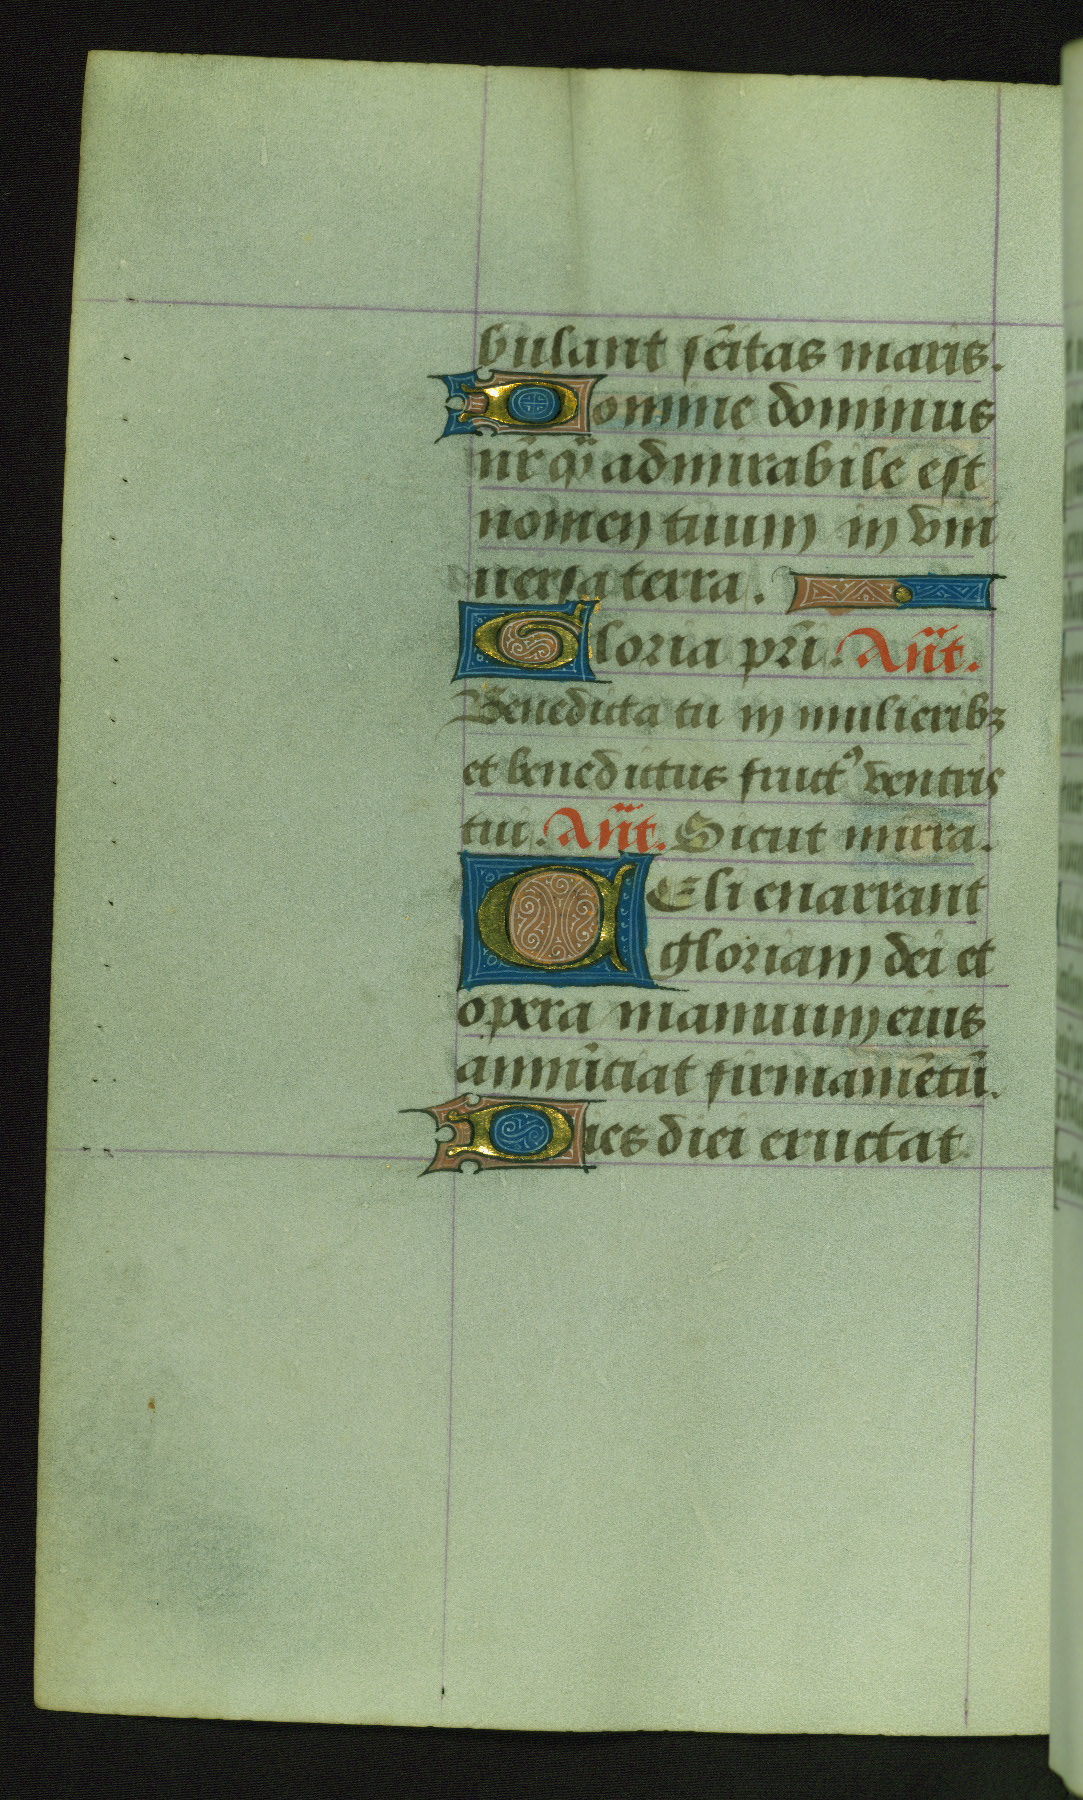 bulant sēitas maris.
Domine dominus
nr̄ q̄ admirabile est
nomen tuum in vni
uersa terra.
Gloria pr̄i. An̄t.
Benedicta tu in mulieribꝫ
et benedictus fruct⁹ ventris
tui. An̄t. Sicut mirra.
CEli enarrant
gloriam dei et
opera manuum eius
annūciat firmamētū.
Dies diei eructat